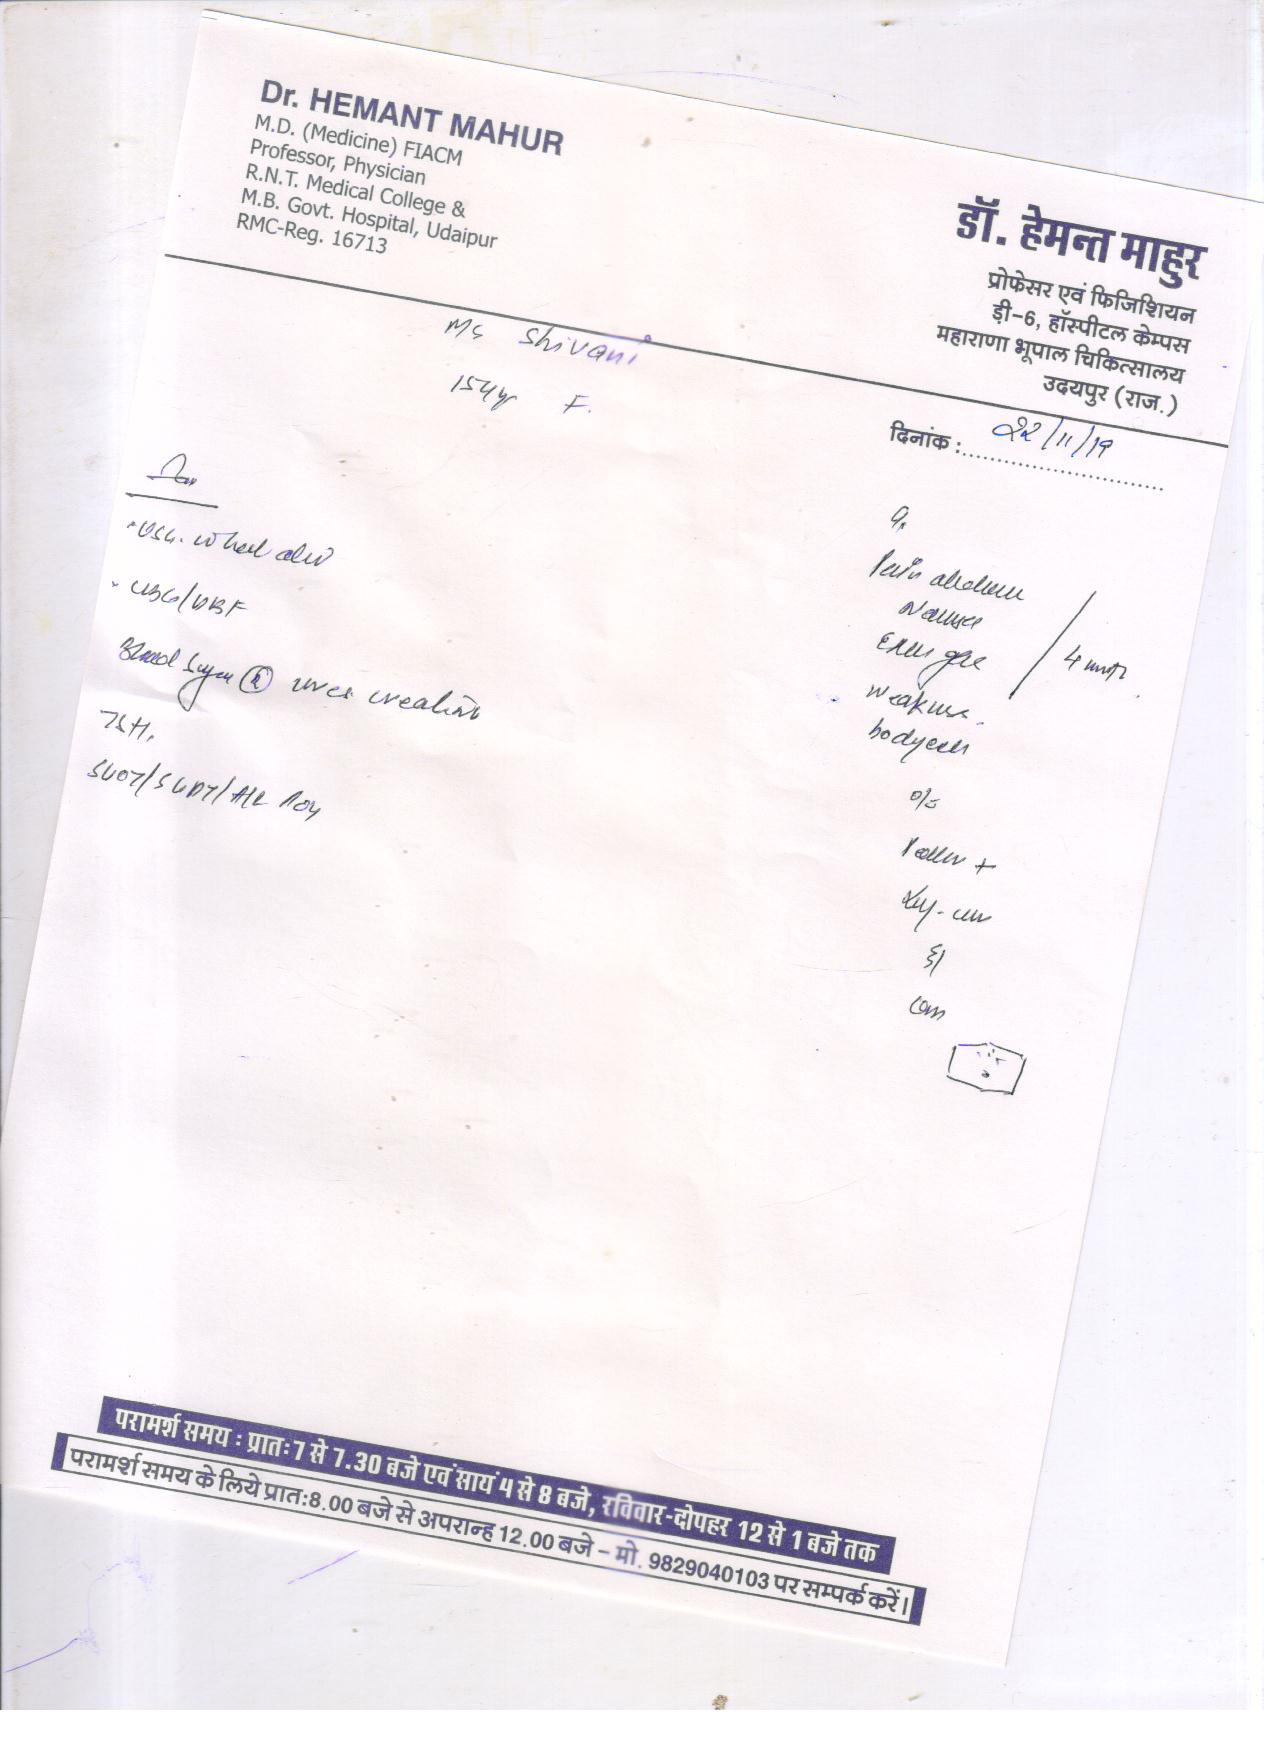 Dr. HEMANT MAHUR
M.D. (Medicine) FIACM
Professor, Physician
R.N.T. Medical College &
M.B. Govt. Hospital, Udaipur
RMC-Reg. 16713
डॉ. हेमन्त माहुर
प्रोफेसर एवं फिजिशियन
डी-6, हॉस्पीटल केम्पस
महाराणा भूपाल चिकित्सालय
उदयपुर (राज.)
दिनांक : 22/11/19
Ms Shivani
15 Yr F.
USG. whol abd
CBC/PBF
Blood Sugar R urea creatin
TSH,
SGOT/SGPT/Alk
Pain abdomen
Nausea
gas
4 month
weakness
bodyach
o/e
Pallor +
परामर्श समय : प्रातः 7 से 7.30 बजे एवं सायं 4 से 8 बजे, रविवार-दोपहर 12 से 1 बजे तक
परामर्श समय के लिये प्रातः 8.00 बजे से अपरान्ह 12.00 बजे - मो. 9829040103 पर सम्पर्क करें।